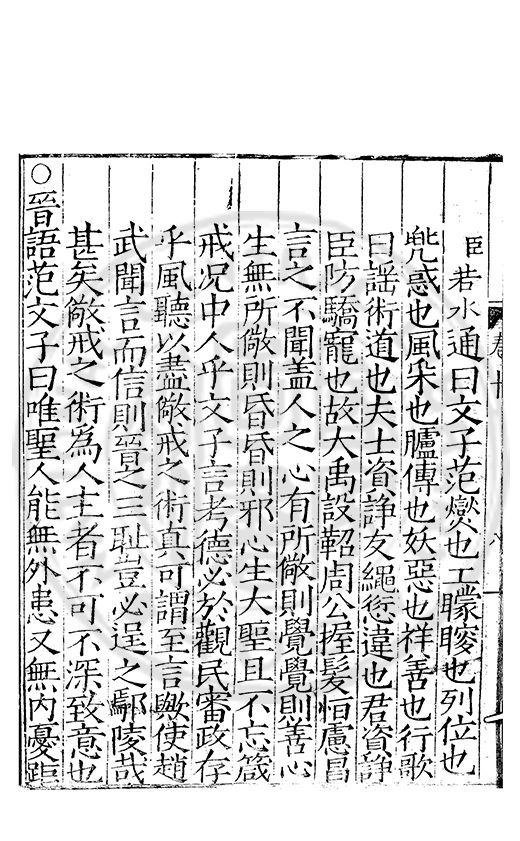 臣若水通曰文子范爕也工矇瞍也列位也
兠惑也風采也臚傳也妖惡也祥善也行歌
曰謡術道也夫士資諍友繩愆違也君資諍
臣防驕寵也故大禹設鞀周公握髮恒慮昌
言之不聞盖人之心有所儆則覺覺則善心
生無所儆則昏昏則邪心生大聖且不忘箴
戒况中人乎文子言考德必於觀民審政存
乎風聽以盡儆戒之術真可謂至言歟使趙
武聞言而信則晉之三耻豈必逞之鄢陵哉
甚矣儆戒之術為人主者不可不深致意也
○晉語范文子曰唯聖人能無外患又無内憂詎
卷十